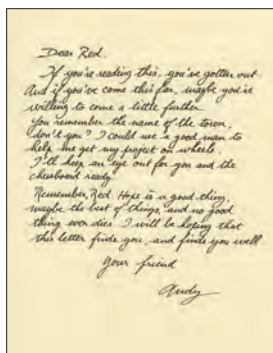 Dear Red.
If you're reading this, you've gotten out
And if you've come this far, maybe you're
willing to come a little further.
You remember the name of the town,
don't you? I could use a good man to
help me get my project on wheels.
I'll keep an eye out for you and the
chessboard ready.
Remember, Red. Hope is a good thing,
maybe the best of things, and no good
thing ever dies. I will be hoping that
this letter finds you, and finds you well
Your friend
Andy